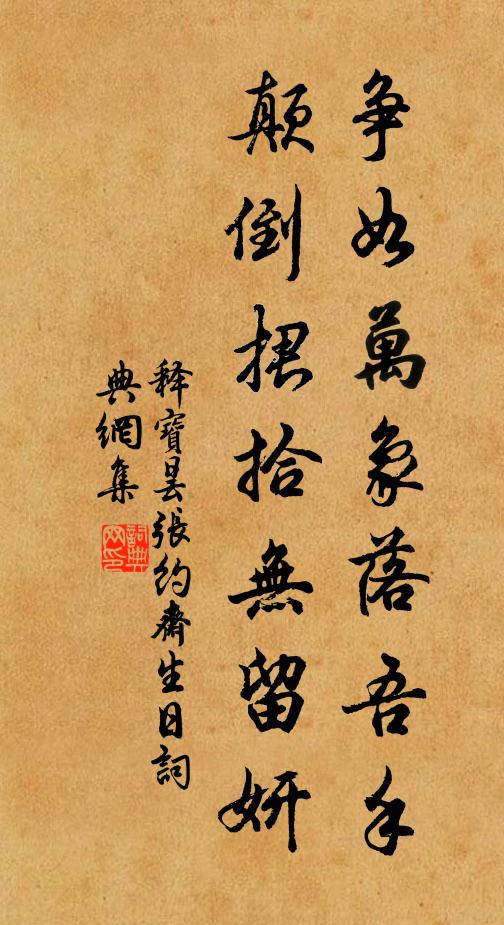 争如萬象落吾手
顛倒捃拾無留妍
釋寶曇張約齋生日詞
典網集
詞典网印